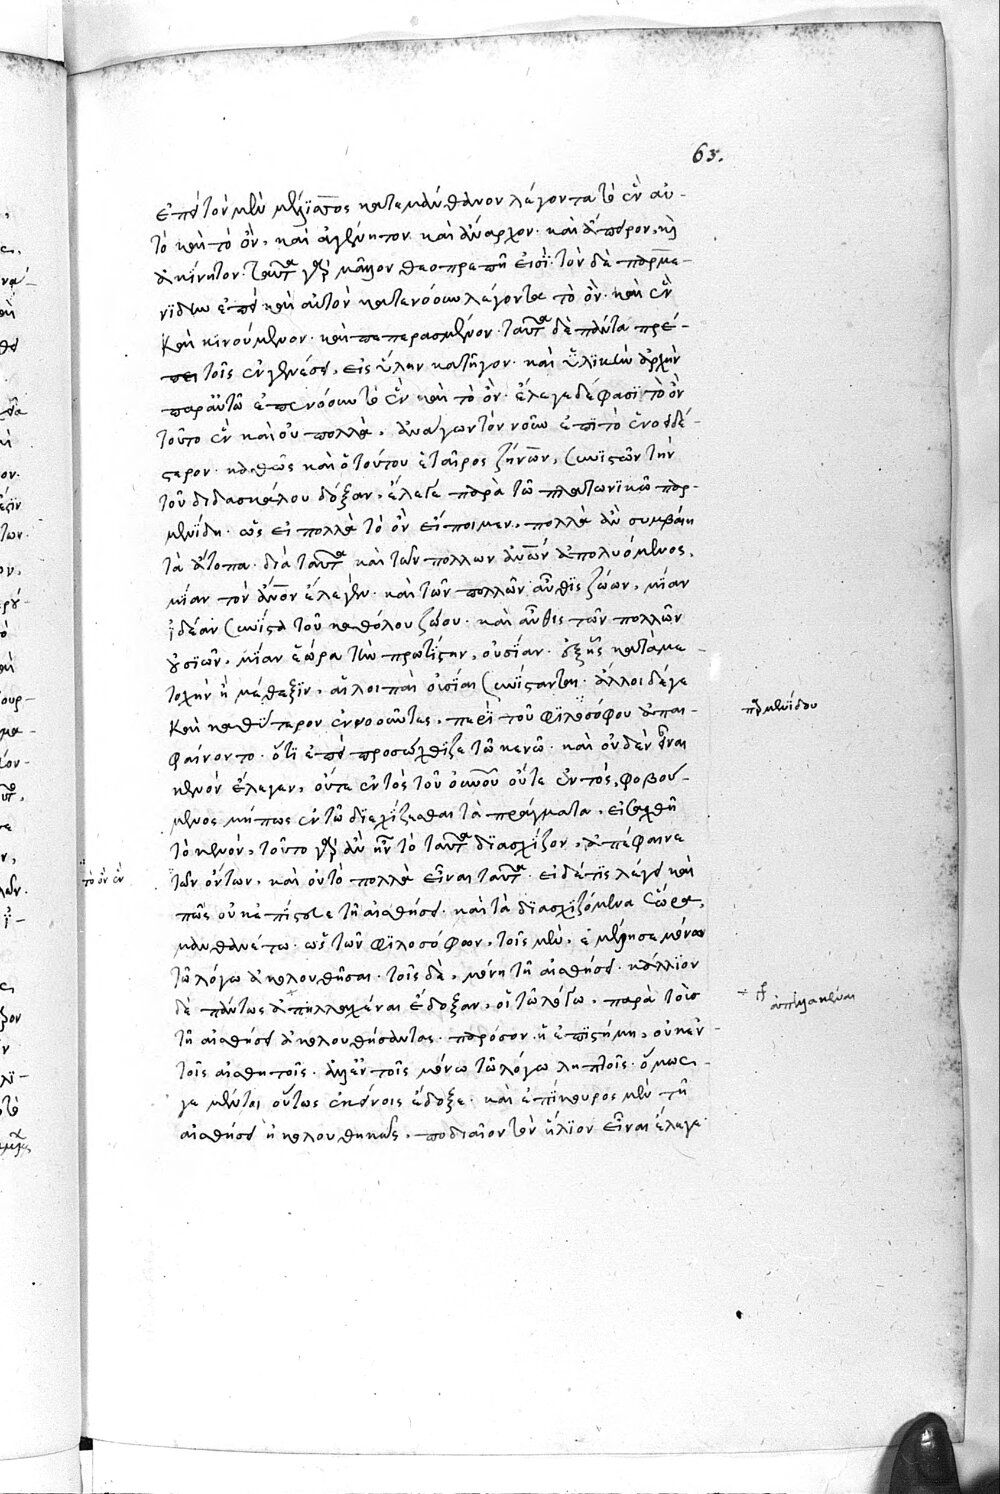 63.
ἐπεὶ τὸν μὲν κατεμάνθανον λέγοντα τὸ ἓν αὐ-
τὸ καὶ τὸ ὄν, καὶ ἀγέννητον καὶ ἄναρχον· καὶ ἄπειρον, καὶ
ἀκίνητον· ταῦτα γὰρ μᾶλλον θεοπρεπῆ εἰσί· τὸν δὲ παρμε-
νίδην ἐπεὶ καὶ αὐτὸν κατενόουν λέγοντα τὸ ὄν· καὶ ἓν
καὶ κινούμενον· καὶ πεπερασμένον· ταῦτα δὲ πάντα πρέ-
πει τοῖς ἐν γενέσει, εἰς ὕλην κατῆγον· καὶ ὑλικὴν ἀρχὴν
παρ' αὐτῶ ἐπενόουν τὸ ἓν καὶ τὸ ὄν· ἔλεγε δέ φασι τὸ ὂν
τοῦτο ἓν καὶ οὐ πολλά, ἀνάγων τὸν νοῦν ἐπὶ τὸ ἑνοειδέ-
στερον· καθὼς καὶ ὁ τούτου ἑταῖρος ζήνων, συνιστῶν τὴν
τοῦ διδασκάλου δόξαν, ἔλεγε παρὰ τῶ πλατωνικῶ παρ-
μενίδη· ὡς εἰ πολλὰ τὸ ὂν εἴποιμεν, πολλὰ ἂν συμβαίη
τὰ ἄτοπα· διὰ ταῦτα καὶ τῶν πολλῶν ἀνων ἀπολυόμενος,
μίαν τὸν ἄνον ἔλεγεν· καὶ τῶν πολλῶν αὖθις ζώων, μίαν
ἰδέαν συνίστα τοῦ καθόλου ζώου· καὶ αὖθις τῶν πολλῶν
οὐσιῶν, μίαν ἑώρα τὴν πρωτίστην, οὐσίαν· ἐξ ἧς κατὰ με-
τοχὴν ἢ μέθεξιν, αἱ λοιπαὶ οὐσίαι συνίστανται· ἄλλοι δέ γε
καὶ καθύτερον ἐννοοῦντες, περὶ τοῦ φιλοσόφου ἀπε-
φαίνοντο· ὅτι ἐπεὶ προσώχθιζε τῶ κενῶ· καὶ οὐδὲν εἶναι
κενὸν ἔλεγεν, οὔτε ἐντὸς τοῦ οὐνοῦ οὔτε ἐκτὸς, φοβού-
μενος μήπως ἐν τῶ διεχίζεσθαι τὰ πράγματα, εἰσαχθῆ
τὸ κενὸν, τοῦτο γὰρ ἂν ἦν τὸ ταῦτα διασχίζον, ἀπέφαινε
τῶν ὄντων, καὶ οὐ τὸ πολλὰ εἶναι ταῦτα· εἰ δέ τις λέγει καὶ
πῶς οὐκ ἐπίστευε τῆ αἰσθήσει· καὶ τὰ διασχιζόμενα ἑώρα,
μανθανέτω· ὡς τῶν φιλοσόφων, τοῖς μὲν, ἐμέλησε μόνον
τῶ λόγω ἀκολουθῆσαι· τοῖς δὲ, μόνη τῆ αἰσθήσει· κάλλιον
δὲ πάντως ἀπηλλαχέναι ἔδοξαν, οἱ τῶ λόγω, παρὰ τοὺς
τῆ αἰσθήσει ἀκολουθήσαντας· παρόσον ἡ ἐπιστήμη, οὐκ ἐν
τοῖς αἰσθητοῖς· ἀλλ' ἐν τοῖς μόνω τῶ λόγω ληπτοῖς· ὅμως
γε μέντοι οὕτως ἐκείνοις ἔδοξε· καὶ ἐπίκουρος μὲν τῆ
αἰσθήσει ἠκολουθηκὼς, ποδιαῖον τὸν ἥλιον εἶναι ἔλεγε
παρμενίδου
τὸ ὂν ἓν